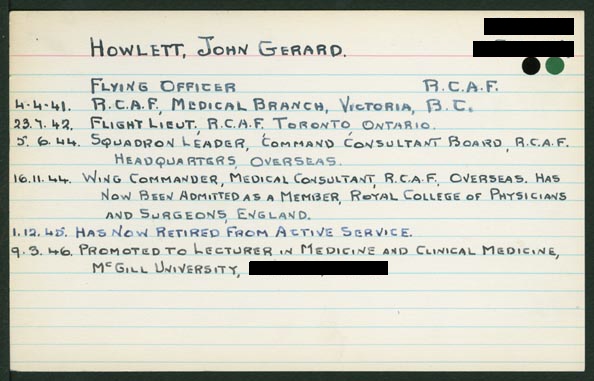 HOWLETT, JOHN GERARD.
FLYING OFFICER R.C.A.F.
4.4.41. R.C.A.F., MEDICAL BRANCH, VICTORIA, B.C.
23.7.42. FLIGHT LIEUT, R.C.A.F. TORONTO ONTARIO.
5.6.44. SQUADRON LEADER, COMMAND CONSULTANT BOARD, R.C.A.F.
HEADQUARTERS, OVERSEAS.
16.11.44. WING COMMANDER, MEDICAL CONSULTANT, R.C.A.F., OVERSEAS. HAS
NOW BEEN ADMITTED AS A MEMBER, ROYAL COLLEGE OF PHYSICIANS
AND SURGEONS, ENGLAND.
1.12.45. HAS NOW RETIRED FROM ACTIVE SERVICE.
9.3.46. PROMOTED TO LECTURER IN MEDICINE AND CLINICAL MEDICINE,
MCGILL UNIVERSITY,